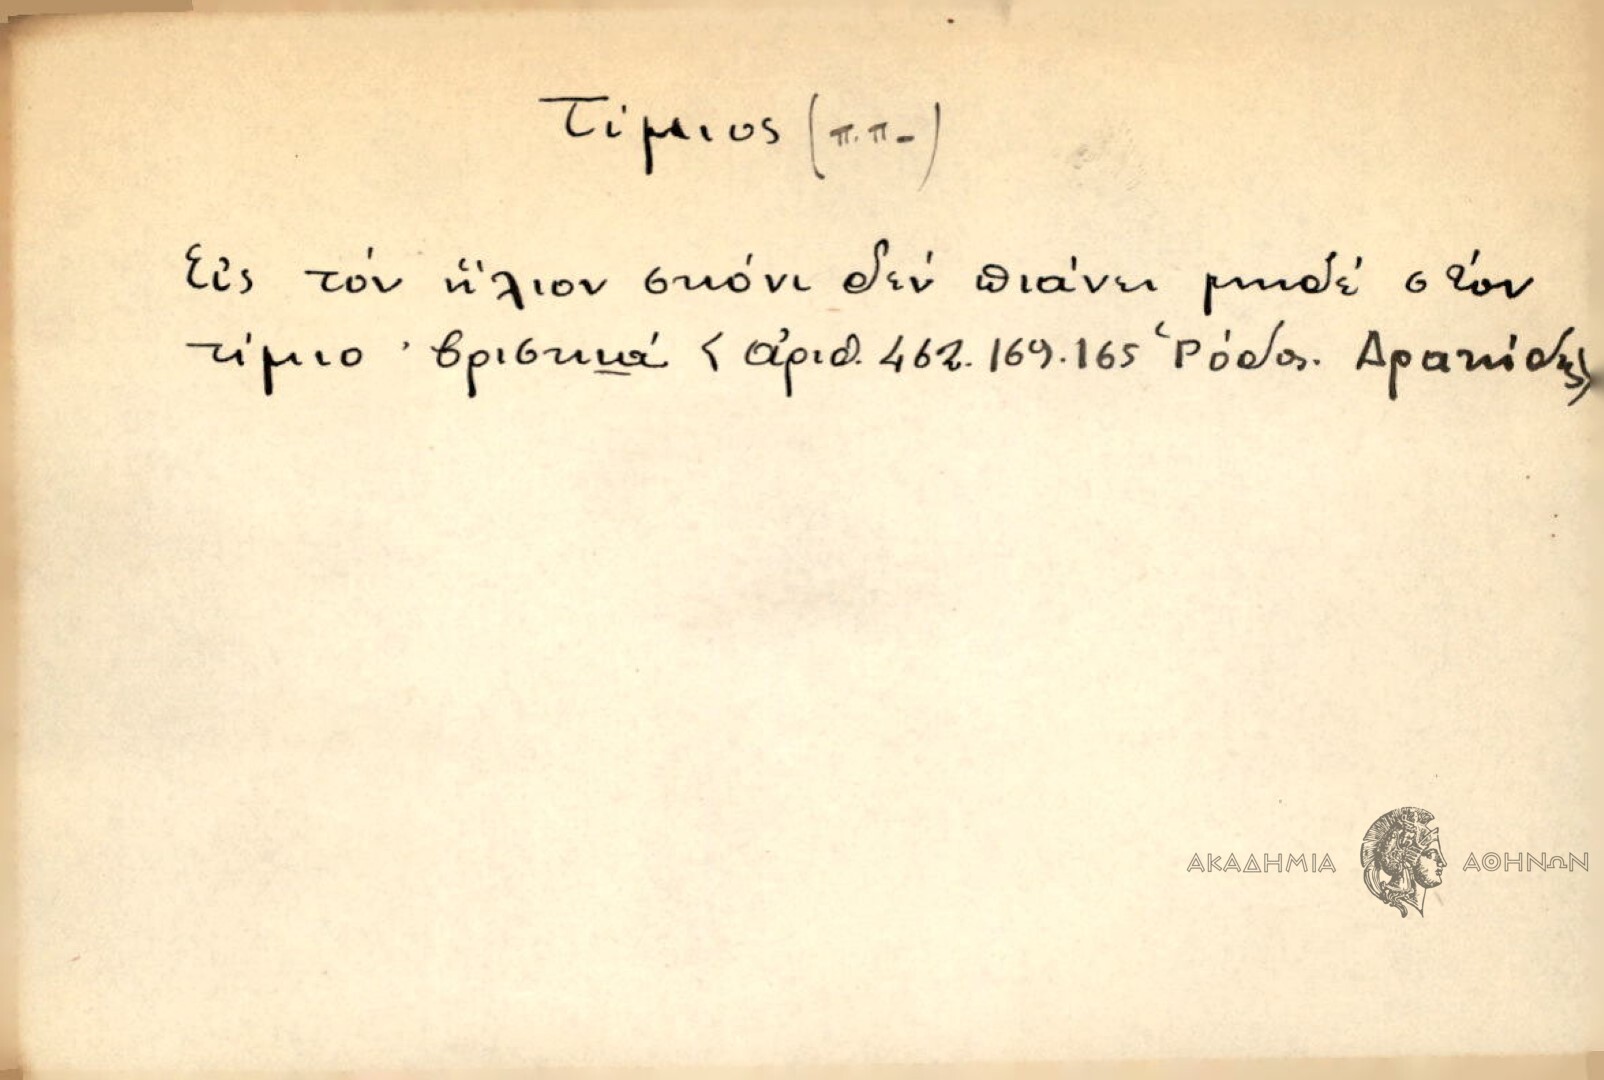 Τίμιος (π.π-)
Εἰς τόν ἥλιον σκόνι δέν πιάνει μηδέ στόν
τίμιο βριστικά (ἀριθ. 462. 169. 165 Ῥόδος. Δρακίδης)
ΑΚΑΔΗΜΙΑ ΑΘΗΝΩΝ